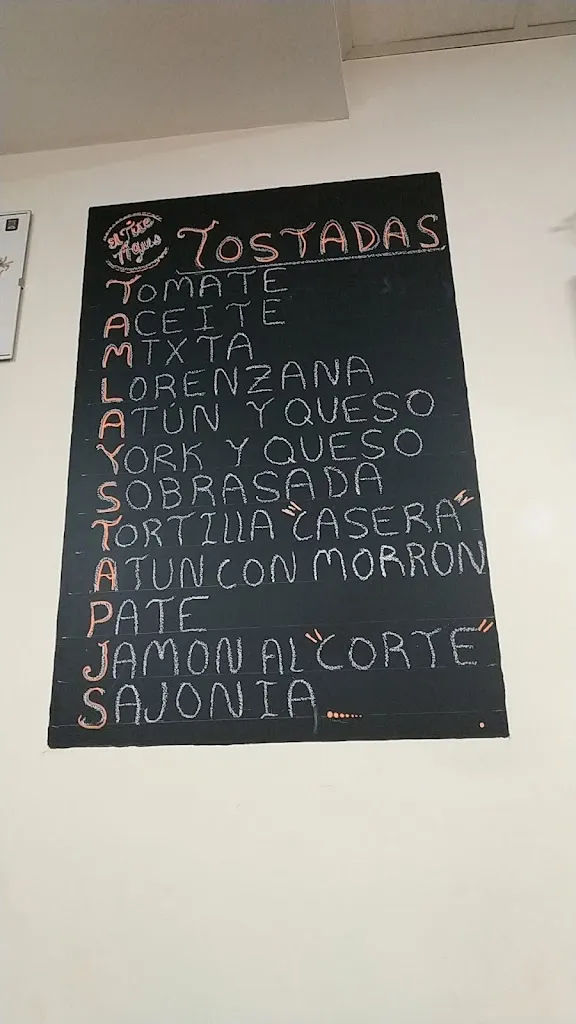 El Tire
Tigues
TOSTADAS
TOMATE
ACEITE
MIXTA
LORENZANA
ATÚN Y QUESO
YORK Y QUESO
SOBRASADA
TORTILLA "CASERA"
ATUN CON MORRON
PATE
JAMON AL "CORTE"
SAJONIA.......